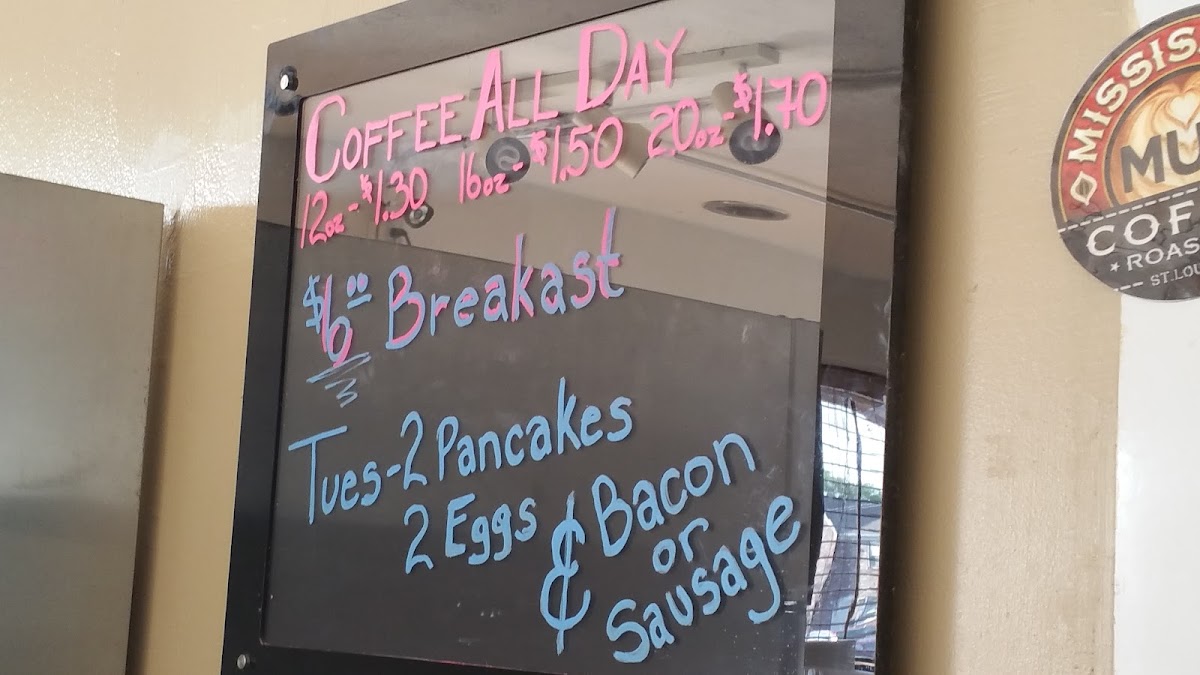 COFFEE ALL DAY
12oz-$1.30 16oz-$1.50 20oz-$1.70
$6.00 Breakast
Tues-2 Pancakes
2 Eggs
& Bacon
or
Sausage
MU
COF
ROAS
ST.LOU